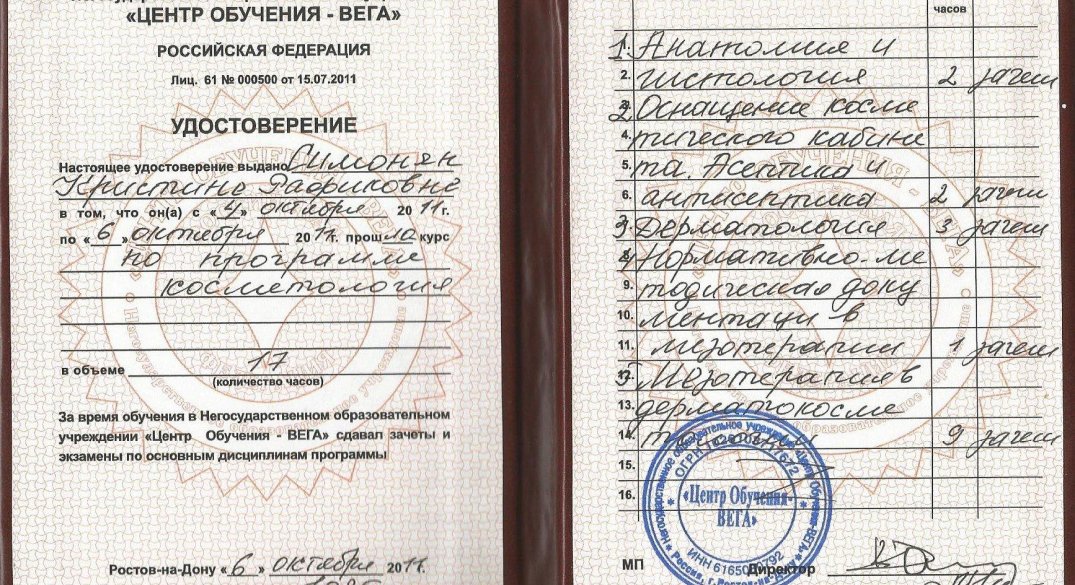 «ЦЕНТР ОБУЧЕНИЯ - ВЕГА»
РОССИЙСКАЯ ФЕДЕРАЦИЯ
Лиц. 61 № 000500 от 15.07.2011
УДОСТОВЕРЕНИЕ
Настоящее удостоверение выдано Симонян
Кристине Рафиковне
в том, что он(а) с «4» октября 2011г.
по «6» октября 2011г. прошла курс
по программе
косметология
в объеме 17
(количество часов)
За время обучения в Негосударственном образовательном
учреждении «Центр Обучения - ВЕГА» сдавал зачеты и
экзамены по основным дисциплинам программы
Ростов-на-Дону «6» октября 2011.
часов
1. Анатомия и
2. гистология 2 зачет
2 Оснащение косме
4. тического кабине
5. та. Асептика и
6. антисептика 2 зачет
3 Дерматология 3 зачет
4 Нормативно-ме
9. тодическая доку
10. ментация в
11. мезотерапии 1 зачет
5 Мезотерапия в
13. дерматокосме
14. 9 зачет
15.
16.
Негосударственное образовательное учреждение «Центр Обучения-ВЕГА»
«Центр Обучения-
ВЕГА»
МП Директор